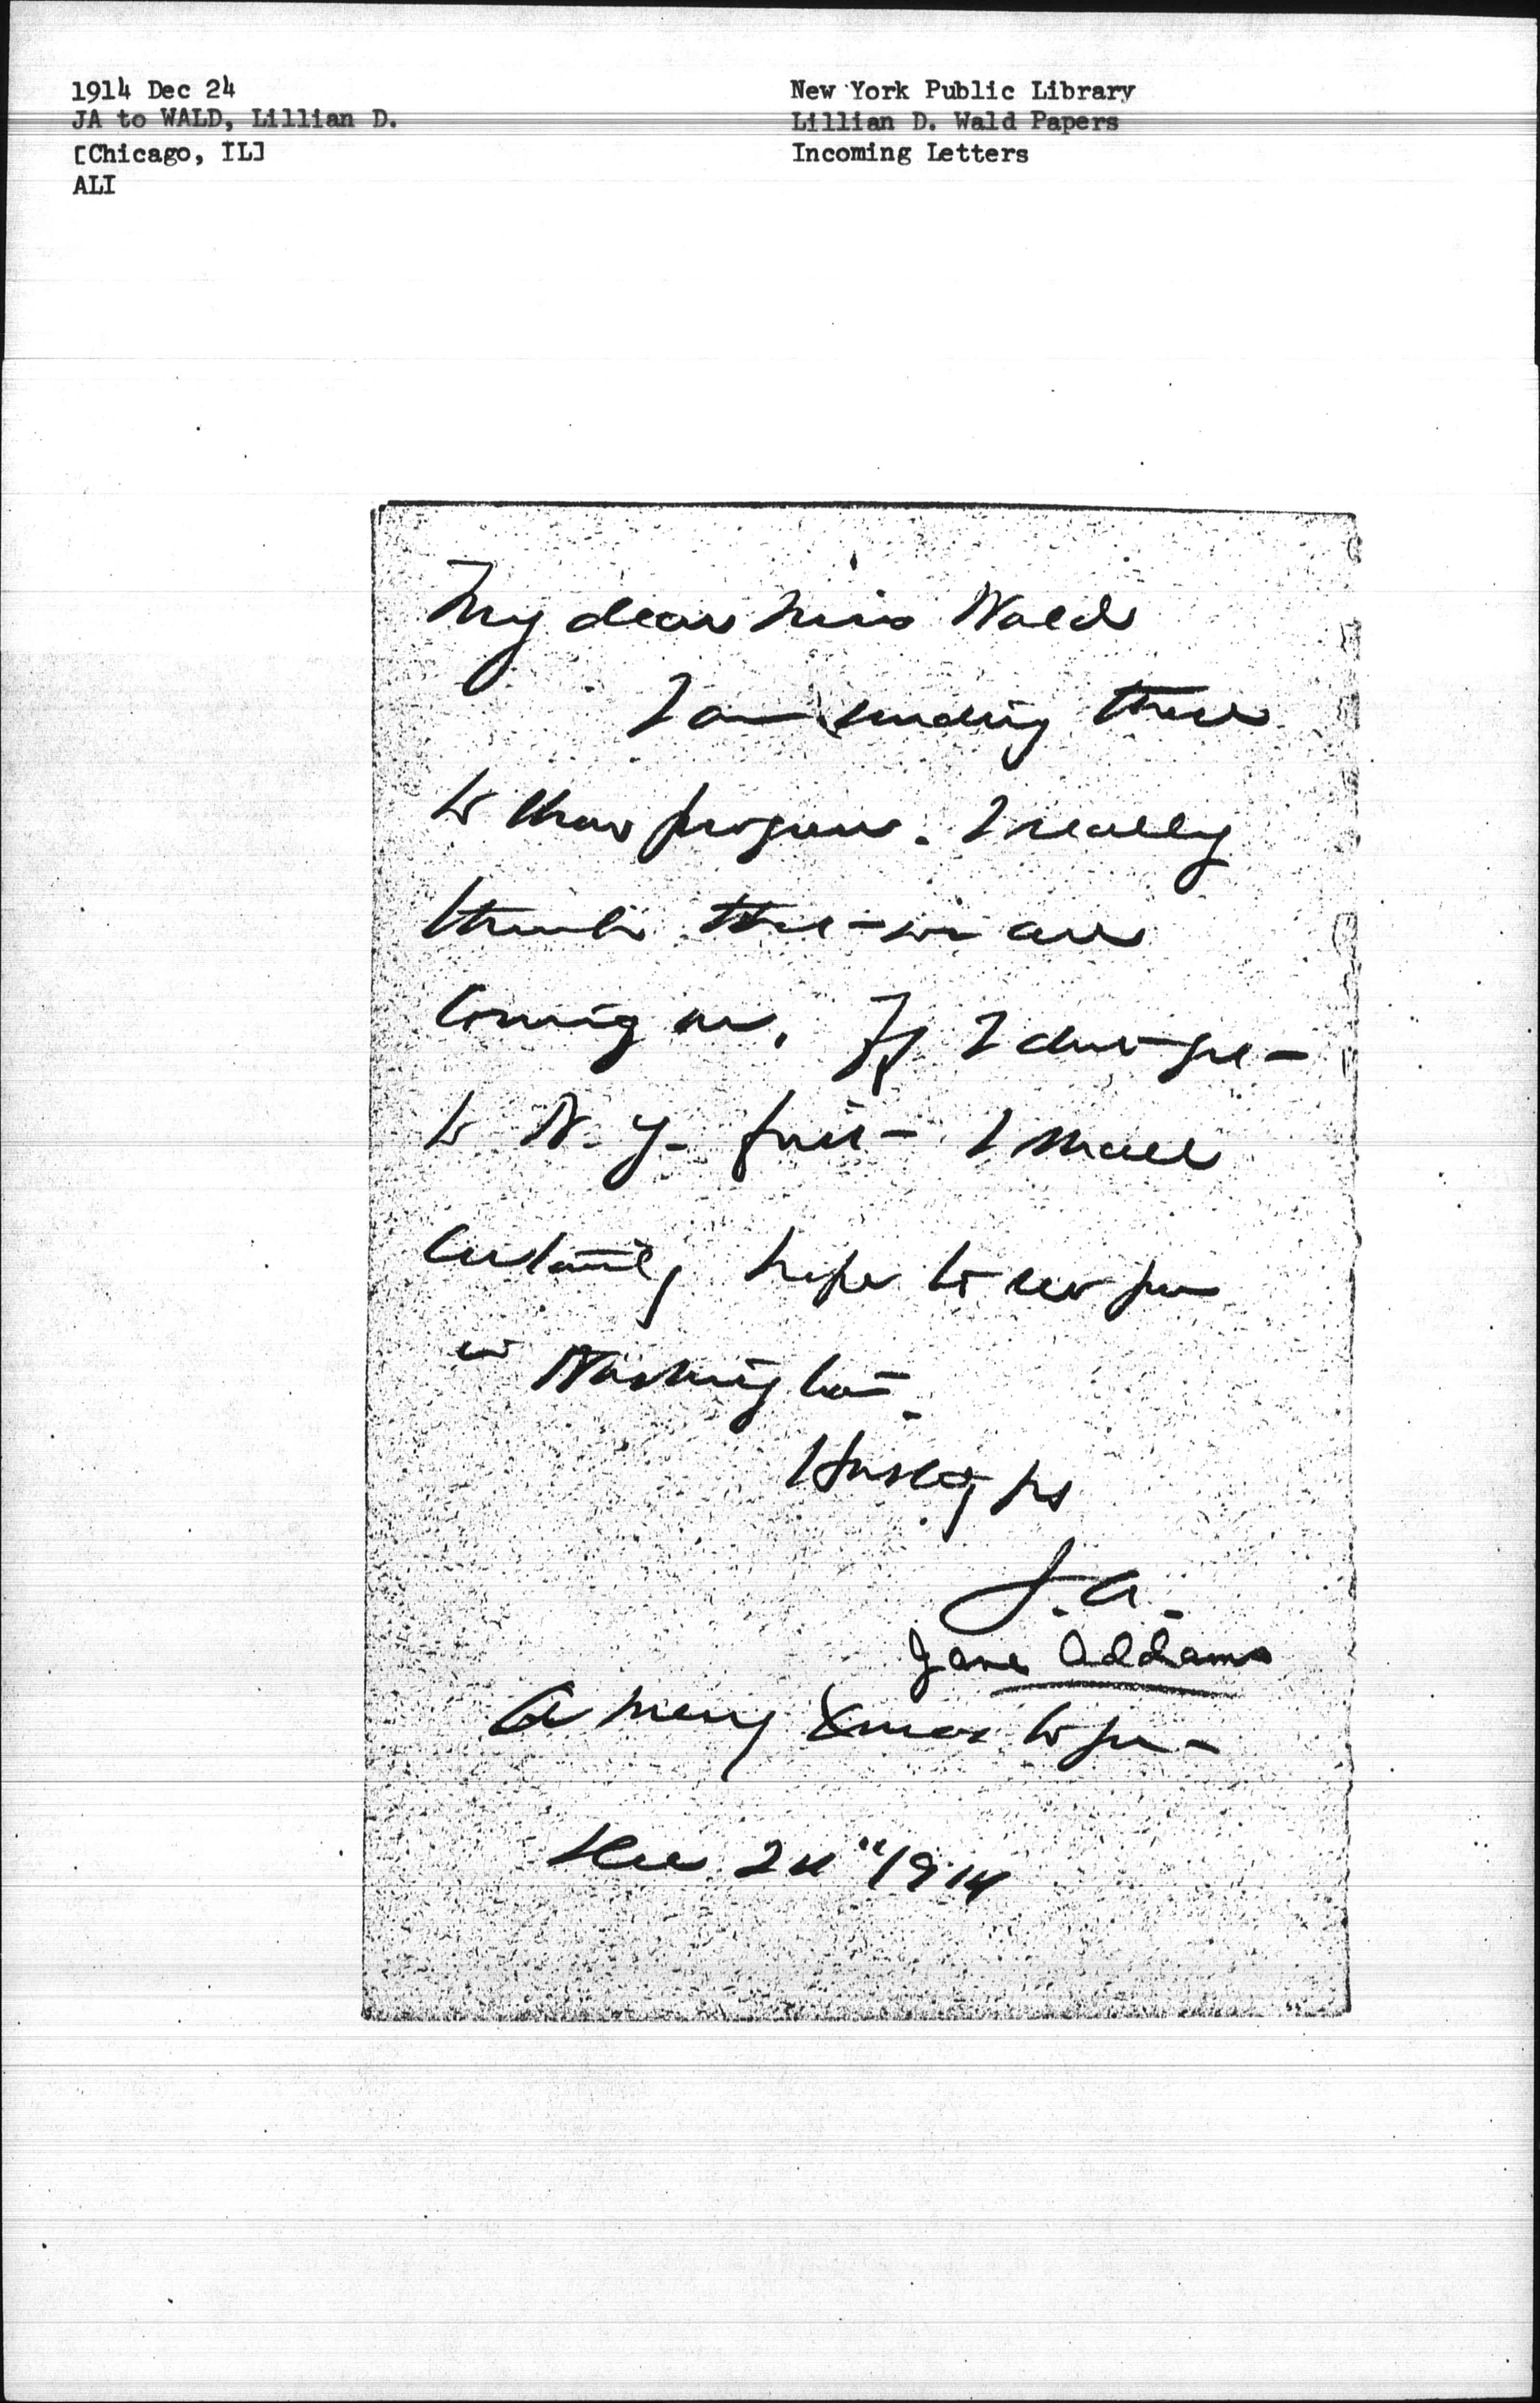 1914 Dec 24
JA to WALD, Lillian D.
[Chicago, IL]
ALI
New York Public Library
Lillian D. Wald Papers
Incoming Letters
My dear Miss Wald
I am sending these
to show progress. I really
think that we are
coming on. If I don't get
to N.Y. first I shall
certainly hope to see you
in Washington.
Hastily yrs
J.A.
Jane Addams
A merry Xmas to you-
Dec 24" 1914